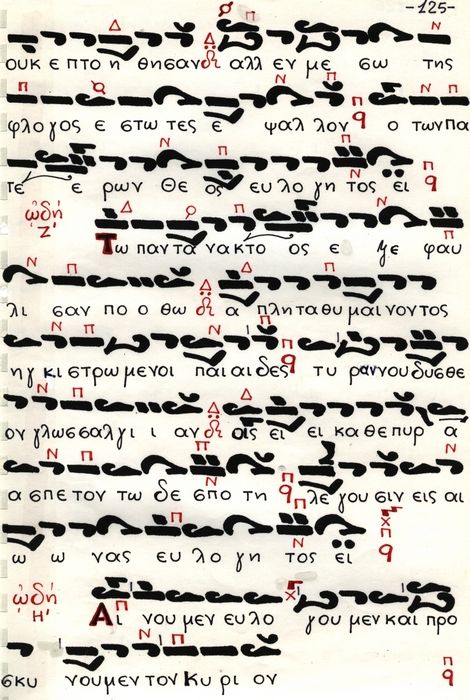 -125-
ουκ ε πτο η θησαν αλλ εν με σω της
φλογος ε στω τες ε ψαλ λον ο των πα
τε ε ρων Θε ος ευ λο γη τος εί
ᾠδή Ζ' Τω παντα νακτο ος ε ξε φαυ
λι σαν πο ο θω α πλητα θυ μαι νοντος
ηγ κι στρω μενοι παι αι δες τυ ραννου δυσθε
ον γλωσσαλγι ι αν ας ει ει καθε πυρ α
α σπετον τω δε σπο τη λε γου σιν εις αι
ω ω νας ευ λο γη τος εί
ᾠδή Η' Αι νου μεν ευλο γου μεν και προ
σκυ νουμεν τον Κυ ρι ον